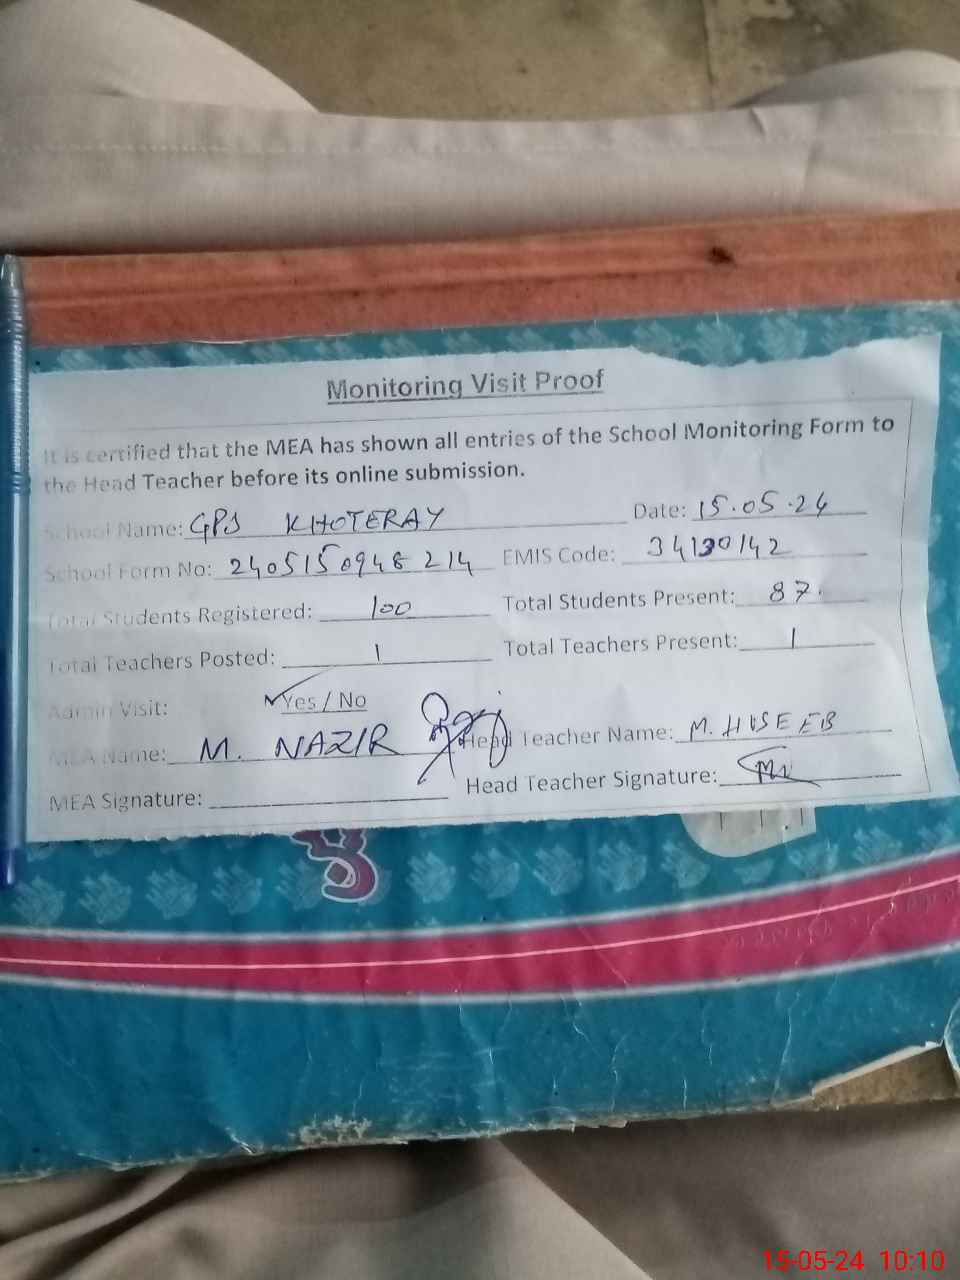 Monitoring Visit Proof
It is certified that the MEA has shown all entries of the School Monitoring Form to
the Head Teacher before its online submission.
School Name: GPS KHOTERAY Date: 15.05.24
School Form No: 2405150948214 EMIS Code: 34130142
Total Students Registered: 100 Total Students Present: 87.
Total Teachers Posted: 1 Total Teachers Present: 1
Admin Visit: Yes / No
MEA Name: M. NAZIR Head Teacher Name: M. HUSEEB
MEA Signature: Head Teacher Signature:
15-05-24 10:10